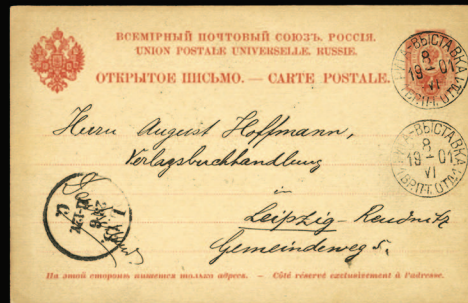 ВСЕМІРНЫЙ ПОЧТОВЫЙ СОЮЗЪ. РОССІЯ.
UNION POSTALE UNIVERSELLE. RUSSIE.
ОТКРЫТОЕ ПИСЬМО. — CARTE POSTALE.
ВЫСТАВКА
8
19 - 01
VI
ВЫСТАВКА
8
19 - 01
VI
Herrn August Hoffmann,
Verlagsbuchhandlung
in
Leipzig-Reudnitz
Gemeindeweg 5.
На этой сторонѣ пишется только адресъ. — Côté réservé exclusivement à l'adresse.